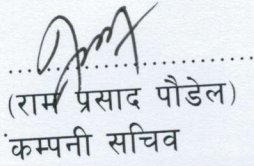 (राम प्रसाद पौडेल)
कम्पनी सचिव